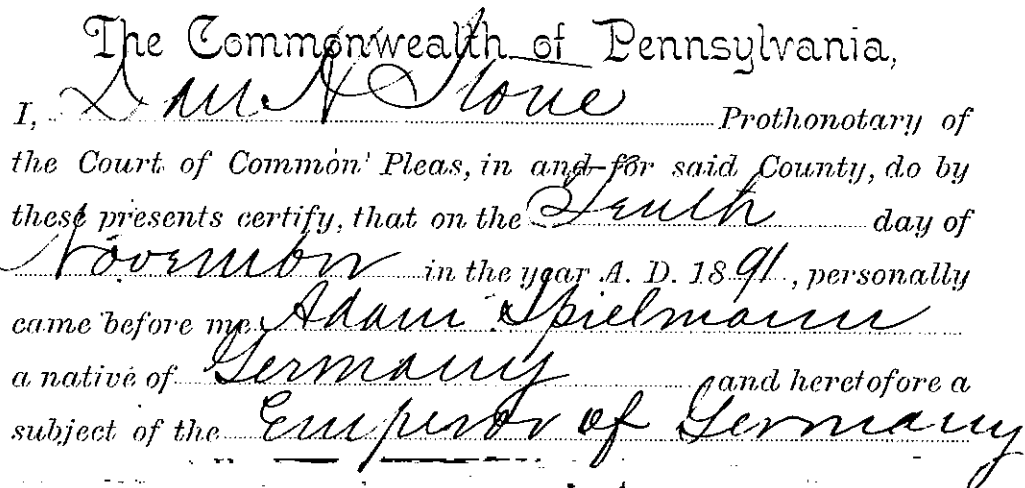 The Commonwealth of Pennsylvania,
I, Dan H Stone Prothonotary of
the Court of Common Pleas, in and for said County, do by
these presents certify, that on the Tenth day of
November in the year A. D. 1891, personally
came before me Adam Spielmann
a native of Germany and heretofore a
subject of the Emperor of Germany